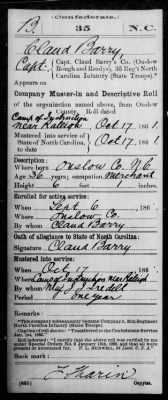 Confederate.
B. 35 N.C.
Claud Barry
Capt., Capt. Claud Barry's Co. (Onslow
Rough and Readys), 35 Reg't North
Carolina Infantry (State Troops).*
Appears on
Company Muster-in and Descriptive Roll
of the organization named above, from Onslow
County. Roll dated
near Raleigh Oct 17, 1861.
Mustered into service of
State of North Carolina, Oct 17, 1861.
dated
Description:
Where born Onslow Co. N.C.
Age 36 years; occupation merchant
Height 6 feet 1 inches.
Enrolled for active service:
When Sept 6, 1861.
Where Onslow Co.
By whom Claud Barry
Oath of allegiance to State of North Carolina:
Signature Claud Barry
Mustered into service:
When Oct 17, 1861.
near Raleigh
By whom Maj. J. J. Iredell
Period one year
Remarks:
*This company subsequently became Company A, 35th Regiment
North Carolina Infantry (State Troops).
Book mark:
(655) Copyist.